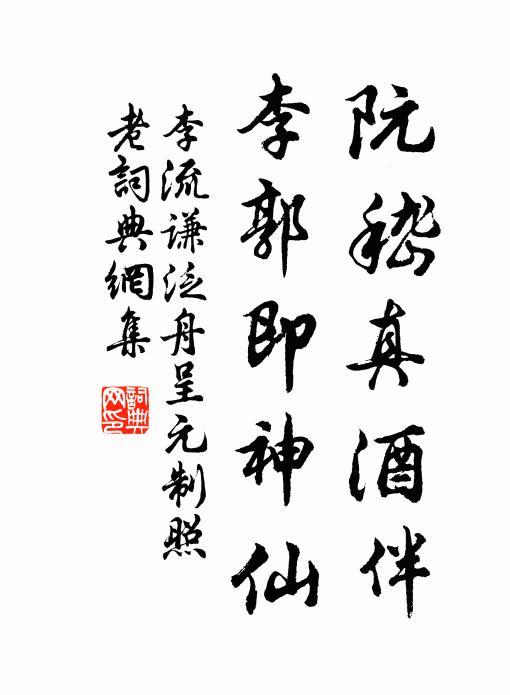 阮嵇真酒伴
李郭即神仙
李流謙泛舟呈元制照
老詞典網集
詞典
网印